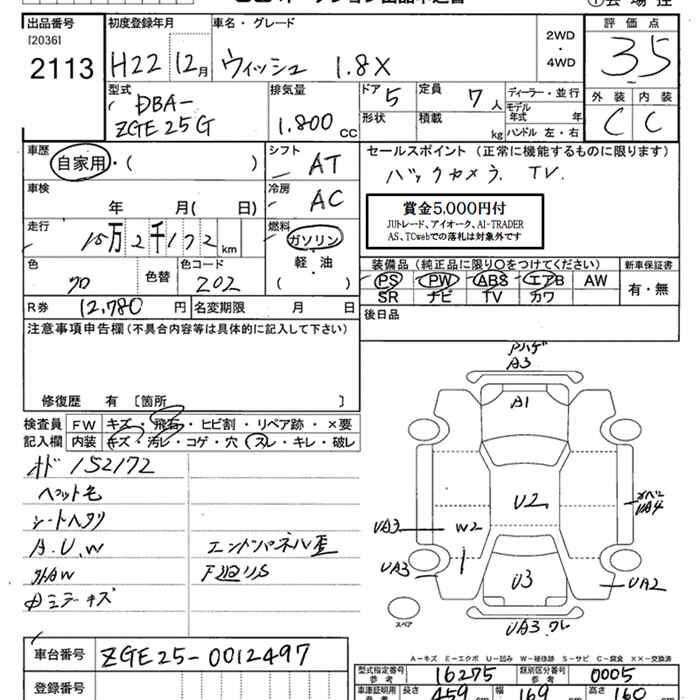 出品番号
[2036]
2113
初度登録年月
H22 12月
車名・グレード
ウィッシュ 1.8X
2WD
・
4WD
評価点
3.5
外装 内装
C C
型式
DBA-
ZGE25G
排気量
1.800 CC
ドア 5
定員 7人
形状
積載 kg
ディーラー・並行
モデル
年式 年
ハンドル 左・右
車歴
自家用・( )
シフト
AT
車検
年 月( 日)
冷房
AC
走行
15万2千172km
燃料
ガソリン
軽・油
( )
色
クロ
色替
色コード
202
R券 12,780円
名変期限 月 日
セールスポイント(正常に機能するものに限ります)
バックカメラ TV.
賞金5,000円付
JUトレード、アイオーク、AI-TRADER
AS、TCwebでの落札は対象外です
装備品(純正品に限り〇をつけてください)
PS PW ABS エアB AW
SR ナビ TV カワ
新車保証書
有・無
後日品
注意事項申告欄(不具合内容等は具体的に記入して下さい)
修復歴 有 [箇所 ]
検査員
記入欄
FW キズ・飛石・ヒビ割・リペア跡・×要
内装 キズ・汚レ・コゲ・穴・スレ・キレ・破レ
オド 152172
ペット毛
シートヘタリ
A.U.W
外AW
エンドパネル歪
下廻リS
アハゲ
A3
A1
U2
UA4
UA3
W2
UA3
U3
UA2
UA3 ワレ
スペア
車台番号 ZGE25-0012497
登録番号
A－キズ E－エクボ U－凹み W－補修跡 S－サビ C－腐食 X×－交換済
型式指定番号
参考
16275
類別区分番号
参考
0005
車庫証明用
参考
長さ 459
幅 169
高さ 160
cm